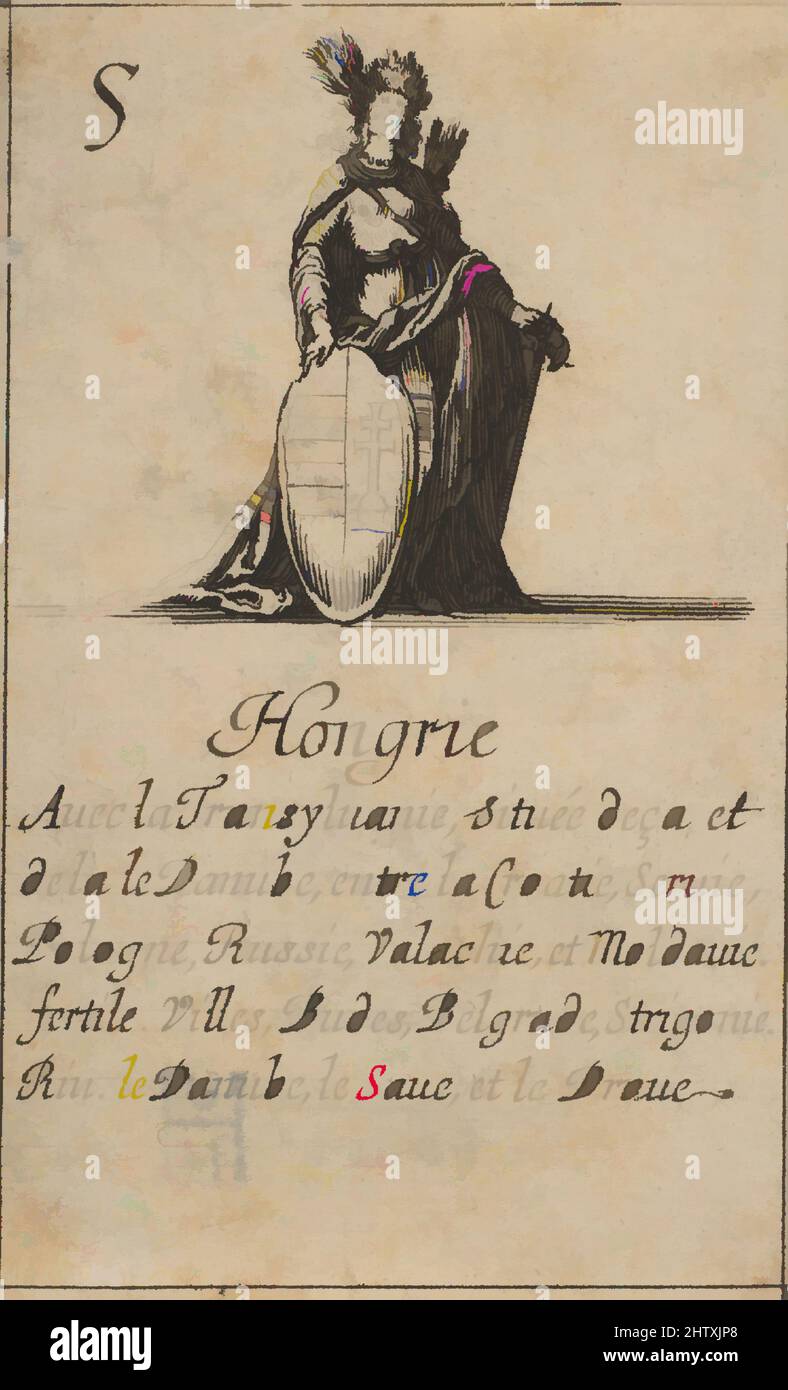 S
alamy
Hongrie
Auec la Transyluanie, située deça et
delà le Danube, entre la Croatie, Seruie,
Pologne, Russie, Valachie, et Moldauie
fertile. Villes, Budes, Belgrade, Strigonie.
Riu. le Danube, le Saue, et le Droue
alamy
Image ID: 2HTXJP8
www.alamy.com